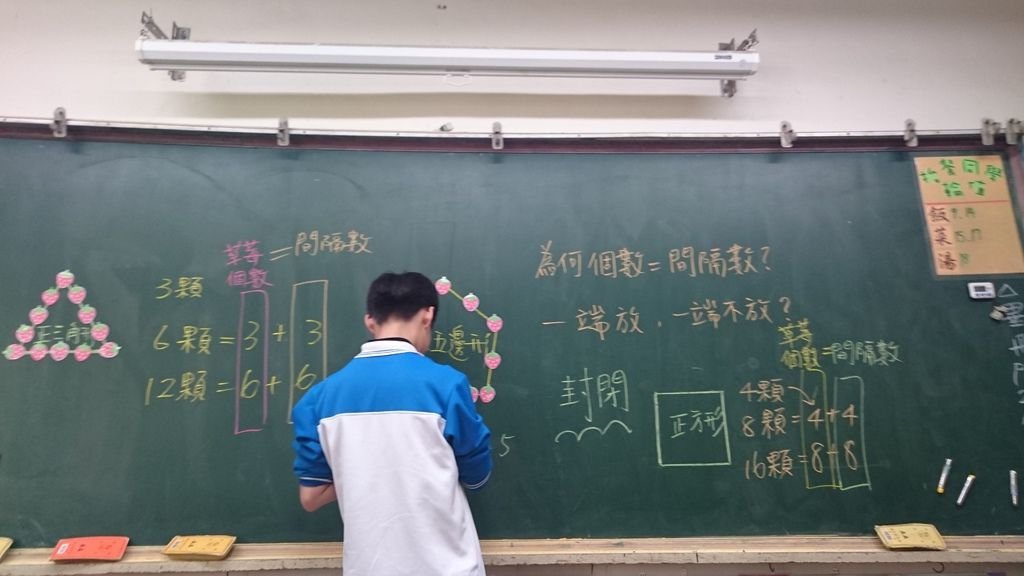 正三角形
草莓
個數
=間隔數
3顆
6顆=3+3
12顆=6+6
五邊形
5
為何個數=間隔數?
一端放,一端不放?
封閉
正方形
草莓
個數=間隔數
4顆
8顆=4+4
16顆=8+8
抬餐同學
輪值
飯
菜15.17
湯18